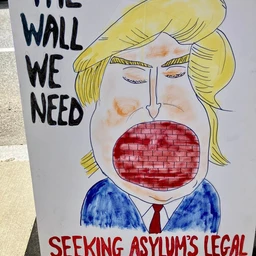 THE
WALL
WE
NEED
SEEKING ASYLUM'S LEGAL